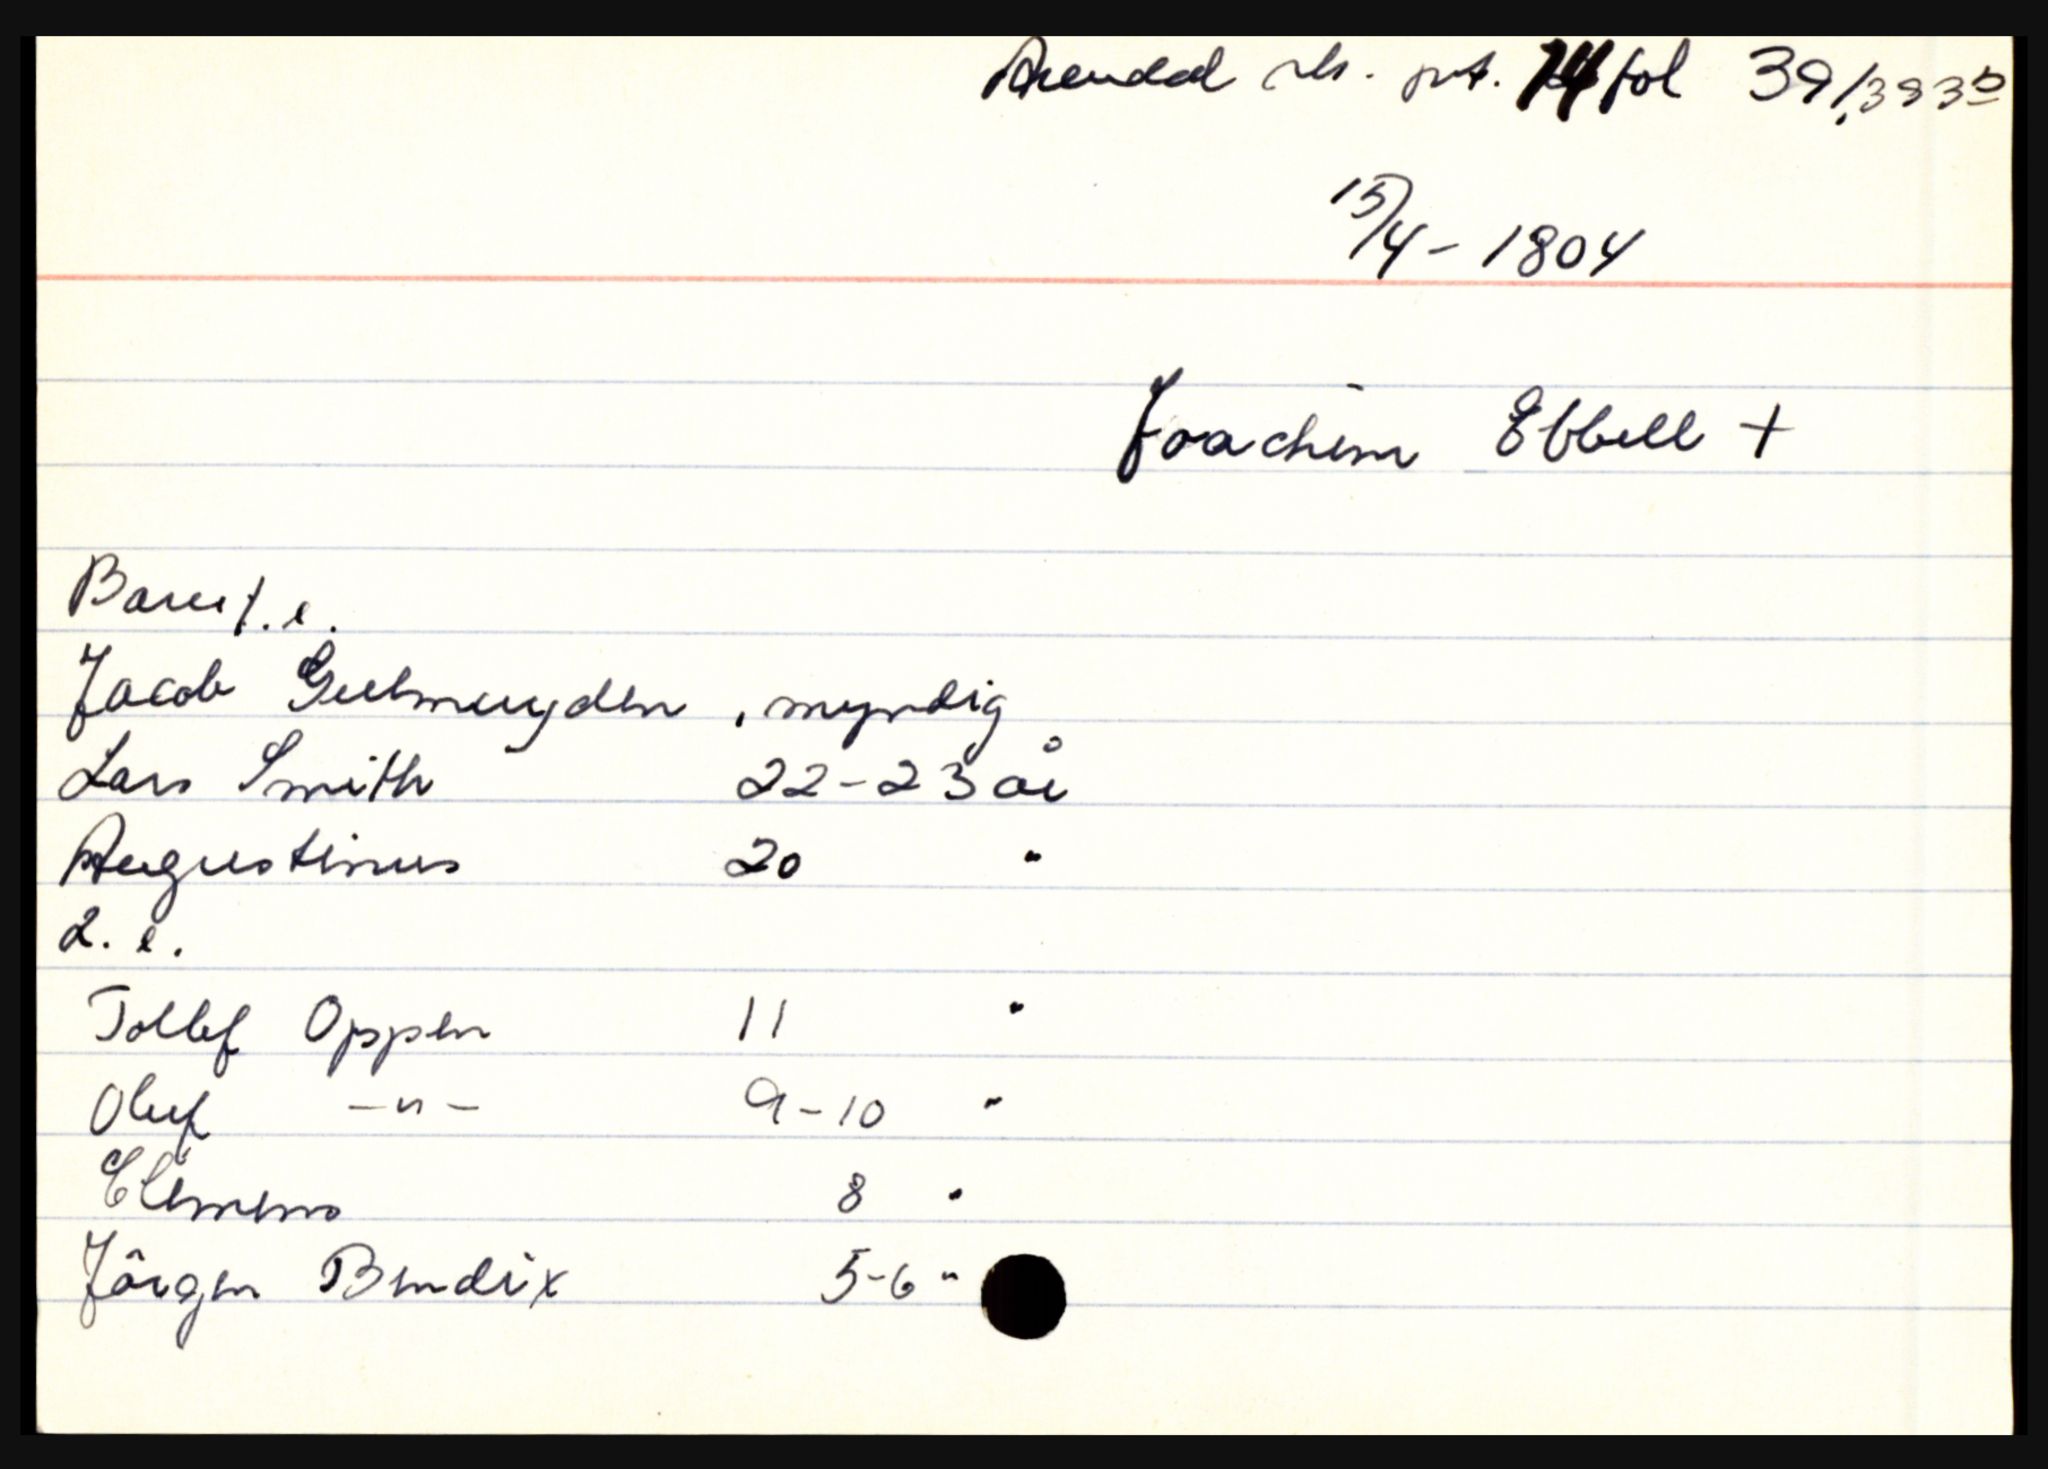 Arendal sk. prt. 14 fol 39/393b
15/4 - 1804
Joachim Ebbell +
Barn 1. e.
Jacob Geelmuyden , myndig
Lars Smith 22-23 år
Augustinus 20 "
2. e.
Tollef Oppen 11 "
Oluf -"- 9-10 "
Clemens 8 "
Jörgen Bendix 5-6 "